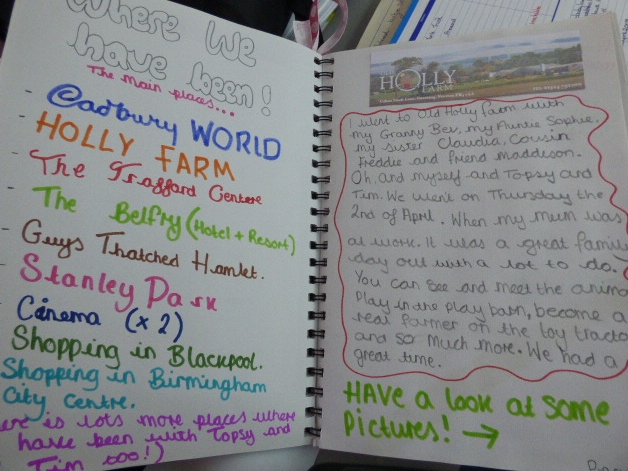 Where We
have been!
The main places...
- Cadbury WORLD
- HOLLY FARM
- The Trafford Centere
- The Belfry (Hotel + Resort)
- Guys Thatched Hamlet.
- Stanley Park
- Cinema (x 2)
- Shopping in Blackpool.
Shopping in Birmingham
City Centre.
ere is lots more places where
have been with Topsy and
Tim too!)
HOLLY
FARM
I went to Old Holly farm with
my Granny Bev, my Auntie Sophie,
my sister Claudia, Cousin
Freddie and friend maddison.
Oh, and myself and Topsy and
Tim. We went on Thursday the
2nd of April. When my mum was
at work. It was a great family
day out with a lot to do.
You can see and meet the anima
play in the play barn, become a
real farmer on the toy tracto
and so much more. We had a
great time.
HAVE a look at some
Pictures! →